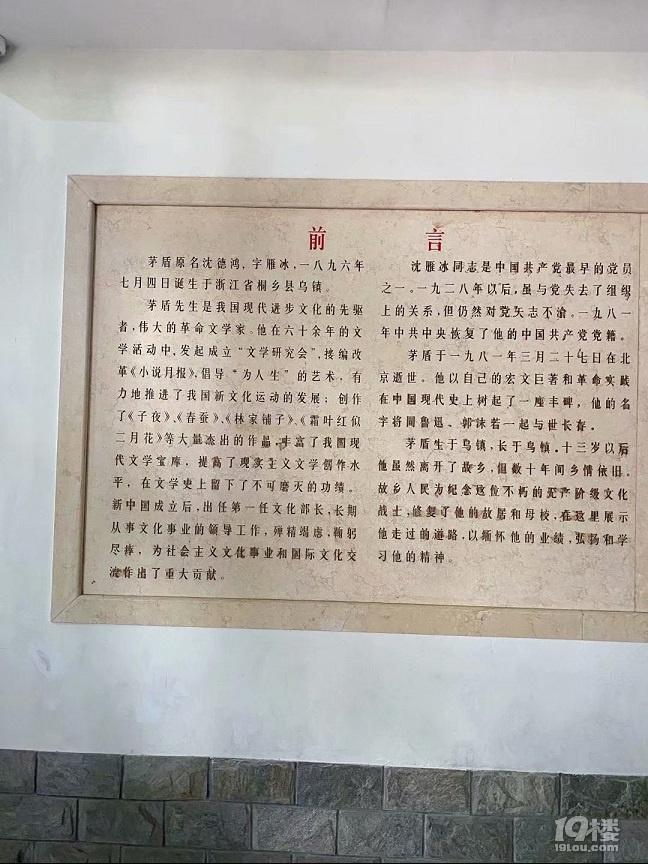 前言
茅盾原名沈德鸿,字雁冰,一八九六年
七月四日诞生于浙江省桐乡县乌镇。
茅盾先生是我国现代进步文化的先驱
者,伟大的革命文学家。他在六十余年的文
学活动中,发起成立“文学研究会”,接编改
革《小说月报》,倡导“为人生”的艺术,有
力地推进了我国新文化运动的发展;创作
了《子夜》、《春蚕》、《林家铺子》、《霜叶红似
二月花》等大量杰出的作品,丰富了我国现
代文学宝库,提高了现实主义文学创作水
平,在文学史上留下了不可磨灭的功绩。
新中国成立后,出任第一任文化部长,长期
从事文化事业的领导工作,殚精竭虑,鞠躬
尽瘁,为社会主义文化事业和国际文化交
流作出了重大贡献。
沈雁冰同志是中国共产党最早的党员
之一。一九二八年以后,虽与党失去了组织
上的关系,但仍然对党矢志不渝。一九八一
年中共中央恢复了他的中国共产党党籍。
茅盾于一九八一年三月二十七日在北
京逝世。他以自己的宏文巨著和革命实践
在中国现代史上树起了一座丰碑,他的名
字将同鲁迅、郭沫若一起与世长存。
茅盾生于乌镇,长于乌镇。十三岁以后
他虽然离开了故乡,但数十年间乡情依旧。
故乡人民为纪念这位不朽的无产阶级文化
战士,修复了他的故居和母校,在这里展示
他走过的道路,以缅怀他的业绩,弘扬和学
习他的精神。
19楼
19lou.com